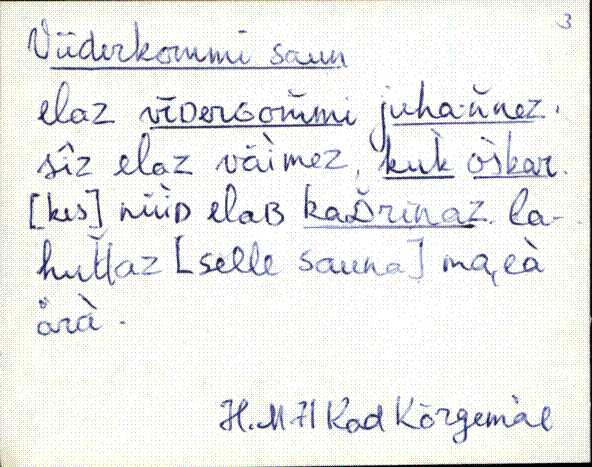 3
Viiderkommi saun
elaz vīDerGom̆mi juhaˑn̆nez.
sîz elaz väìmez, kuk̀ òskar.
[kes] nüüD elaB kaD̆rinaz. la-
hut̆taz [selle sauna] ma, eà
ärà.
H. M 71 Kad Kõrgemäe